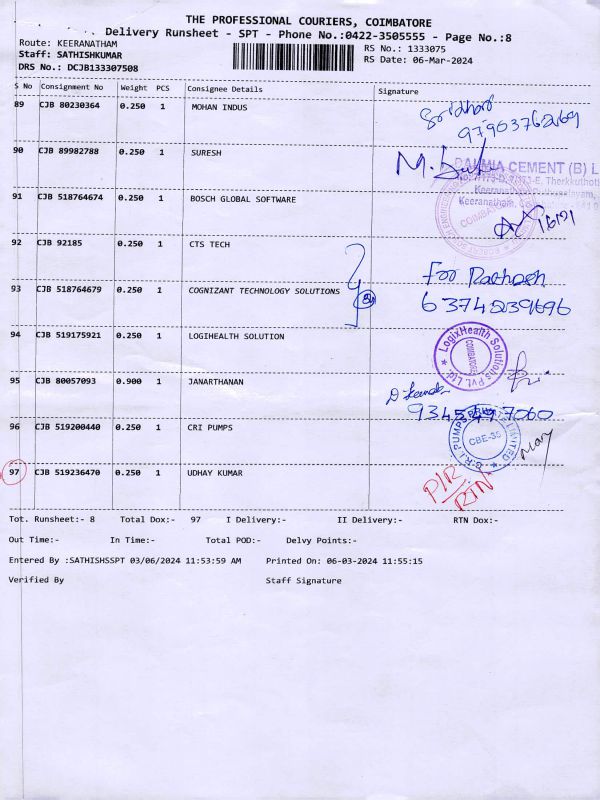 THE PROFESSIONAL COURIERS, COIMBATORE
Delivery Runsheet - SPT - Phone No.:0422-3505555 - Page No.:8
Route: KEERANATHAM
RS No.: 1333075
Staff: SATHISHKUMAR
RS Date: 06-Mar-2024
DRS No.: DCJB133307508
S No Consignment No Weight PCS Consignee Details Signature
89 CJB 80230364 0.250 1 MOHAN INDUS
Sridhar
90 CJB 89982788 0.250 1 SURESH
DALMIA CEMENT (B) L
Therkkuthot
Keeranatham
91 CJB 518764674 0.250 1 BOSCH GLOBAL SOFTWARE
COIMBATORE
92 CJB 92185 0.250 1 CTS TECH
For
93 CJB 518764679 0.250 1 COGNIZANT TECHNOLOGY SOLUTIONS
94 CJB 519175921 0.250 1 LOGIHEALTH SOLUTION
LogixHealth Solutions Pvt. Ltd.
COIMBATORE
95 CJB 80057093 0.900 1 JANARTHANAN
96 CJB 519200440 0.250 1 CRI PUMPS
C.R.I PUMPS PRIVATE LIMITED
CBE-35
97 CJB 519236470 0.250 1 UDHAY KUMAR
P/R
RTN
Tot. Runsheet:- 8 Total Dox:- 97 I Delivery:- II Delivery:- RTN Dox:-
Out Time:- In Time:- Total POD:- Delvy Points:-
Entered By :SATHISHSSPT 03/06/2024 11:53:59 AM Printed On: 06-03-2024 11:55:15
Verified By Staff Signature